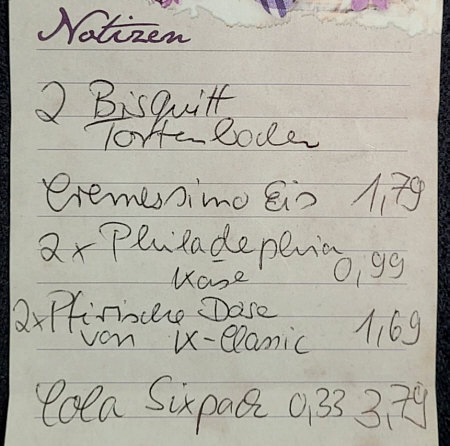 Notizen
2 Bisquitt
Tortenboden
Cremessimo Eis 1,79
2x Philadephia
Käse 0,99
2x Pfirsische Dose
von K-Classic 1,69
Cola Sixpack 0,33 3,79